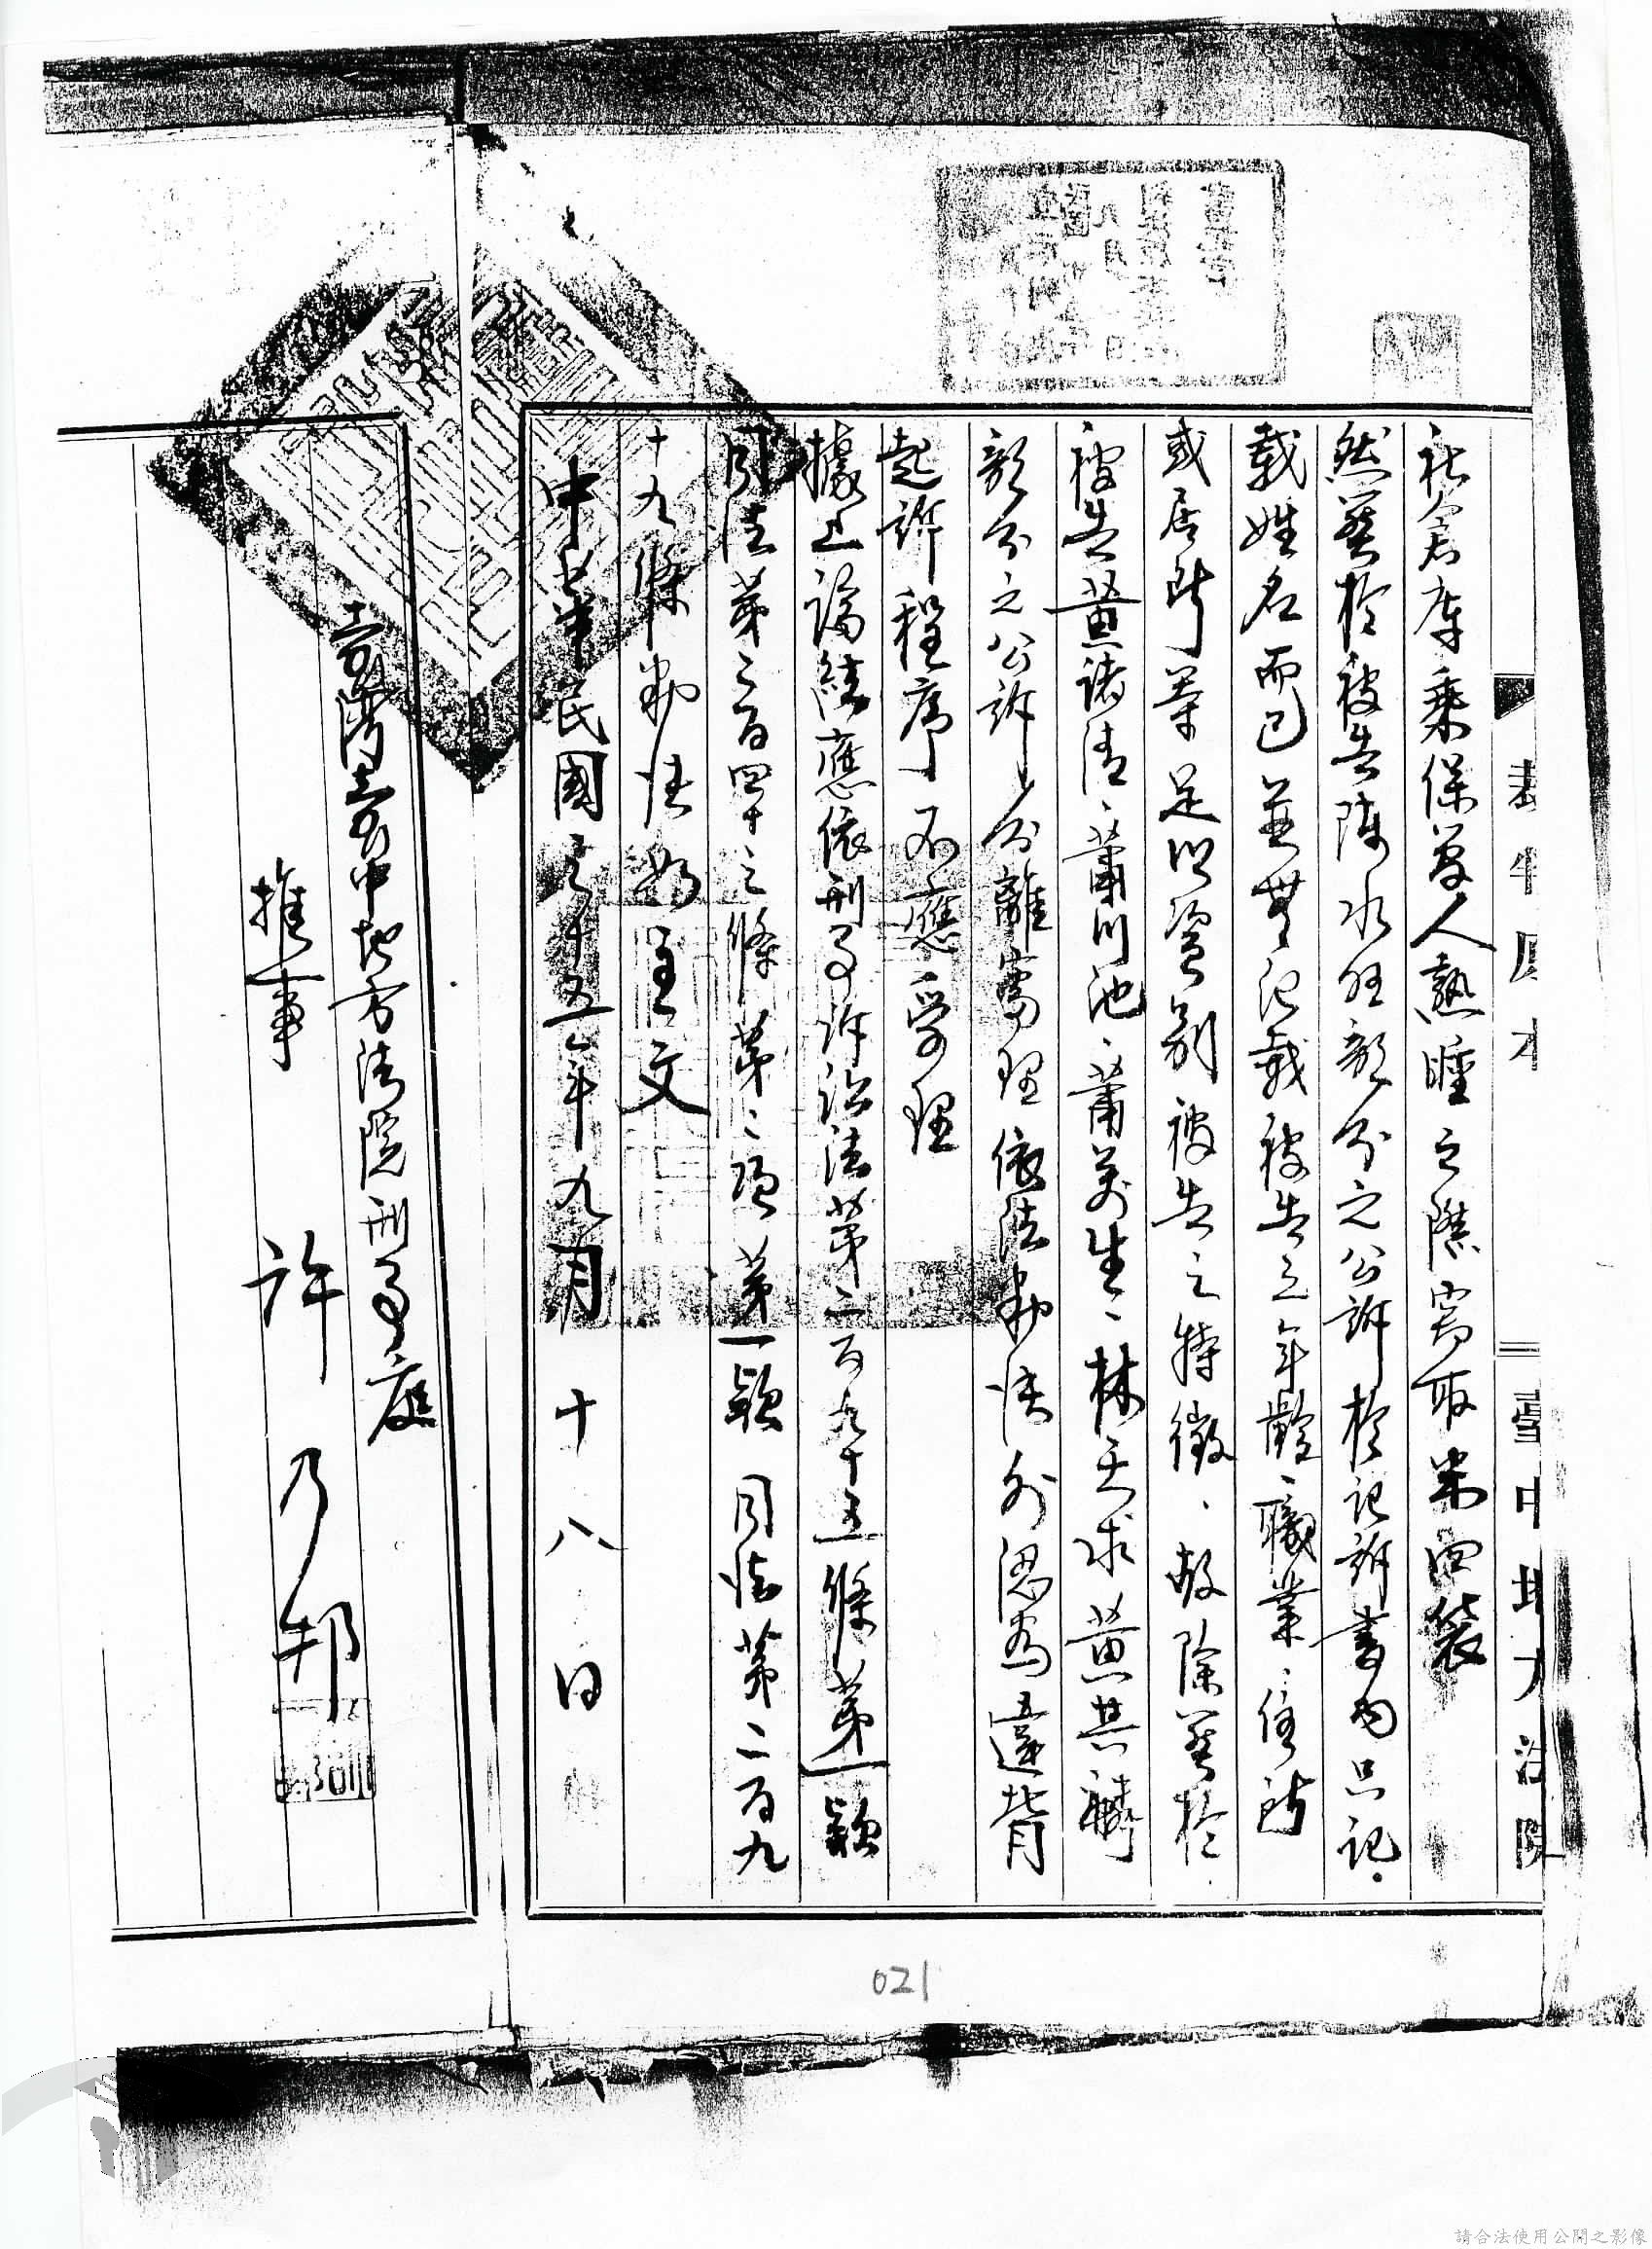 裁判原本
臺中地方法院
社倉庫乘保管人熟睡之際竊取米四袋
然關於被告陳水旺部分之公訴於記訴書內只記
載姓名而已並無記載被告之年齡、職業、住所
或居所等足以資別被告之特徵、故除關於
被告黃諸清、蕭川池、蕭萬生、林天求黃其麟
部分之公訴分離審理依法判決外認為違背
起訴程序不應受理
據上論結應依刑事訴訟法第二百九十五條第一款
同法第三百四十三條第二項第一款同法第二百九
十九條判決如主文
中華民國三十五年九月十八日
臺灣臺中地方法院刑事庭
推事 許乃邦
021
請合法使用公開之影像